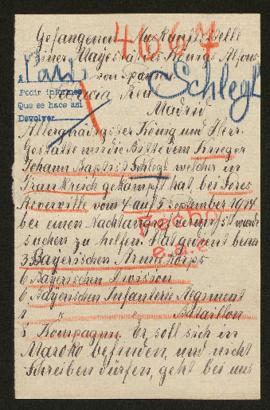 Gefangenen Auskunftstelle
Seiner Majestät des Königs Alfons
von Spanien
4664
Paris
Schlegl
Pedir informes
Que se hace así
Devolver
Madrid
Allergnädigster König und Herr
Gestatte mir die Bitte dem Krieger
Johann Baptist Schlegl welcher in
Frankreich gekämpft hat, bei
vom 4 auf 5 September 1914
bei einen Nachtangriff vermißt wurde
suchen zu helfen. Hat gedient beim
3 Bayerischen Armeekorps
6 Bayerischen Division
Bayerischen Infanterie Regiment
Bataillon
5 Kompagnie. Er soll sich in
Maroko befinden, und nicht
schreiben dürfen, geht bei uns